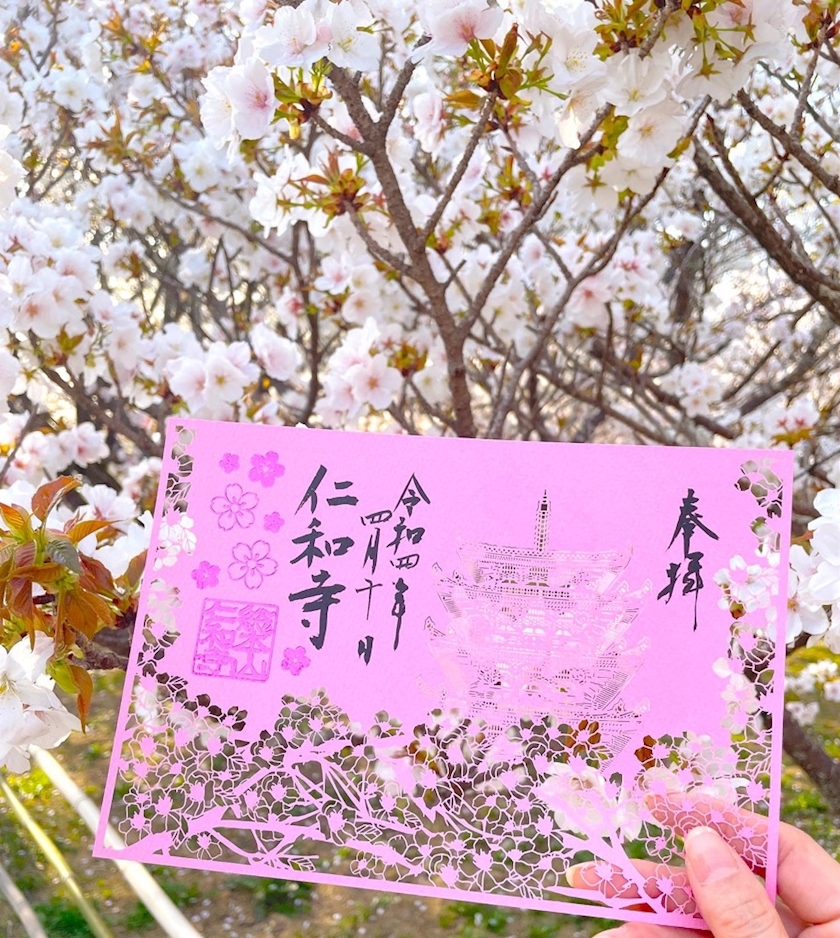 奉拝
令和四年
四月十日
仁和寺
総本山
仁和寺